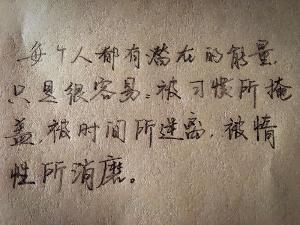 每个人都有潜在的能量,
只是很容易：被习惯所掩
盖,被时间所迷离,被惰
性所消磨。